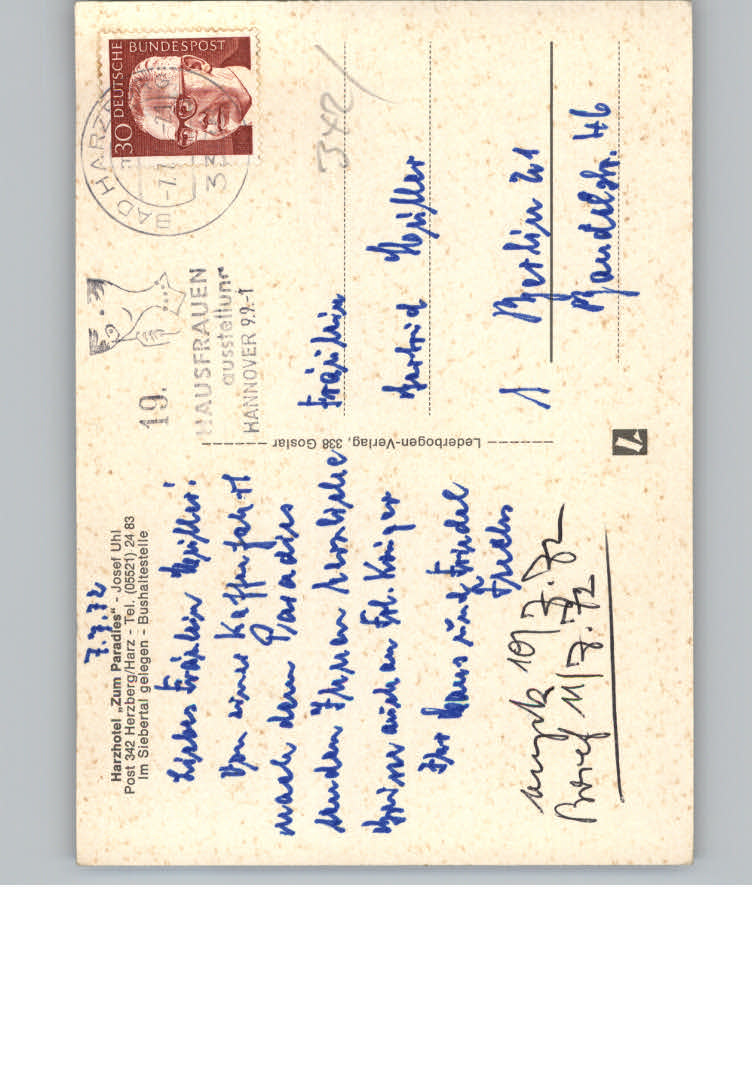 Harzhotel „Zum Paradies" - Josef Uhl
Post 342 Herzberg/Harz - Tel. (05521) 24 83
Im Siebertal gelegen - Bushaltestelle
7.7.72
Liebes Fräulein Müller!
Von einer Kaffeefahrt
nach dem Paradies
senden Ihnen herzliche
Grüsse auch an Frl. Krüger
Ihr Hans und Friedel
10/7.72
Brief 11/7.72
Lederbogen-Verlag, 338 Goslar
DEUTSCHE BUNDESPOST
30
BAD HARZ
-7.7.
33
19.
HAUSFRAUEN
ausstellung
HANNOVER 9.9.-1
342
Fräulein
Müller
1 Berlin 21
Bandelstr. 46